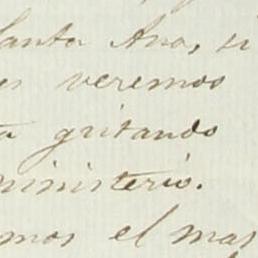 Santa Ana, si
es veremos
a gritando
ministerio.
mos el mas